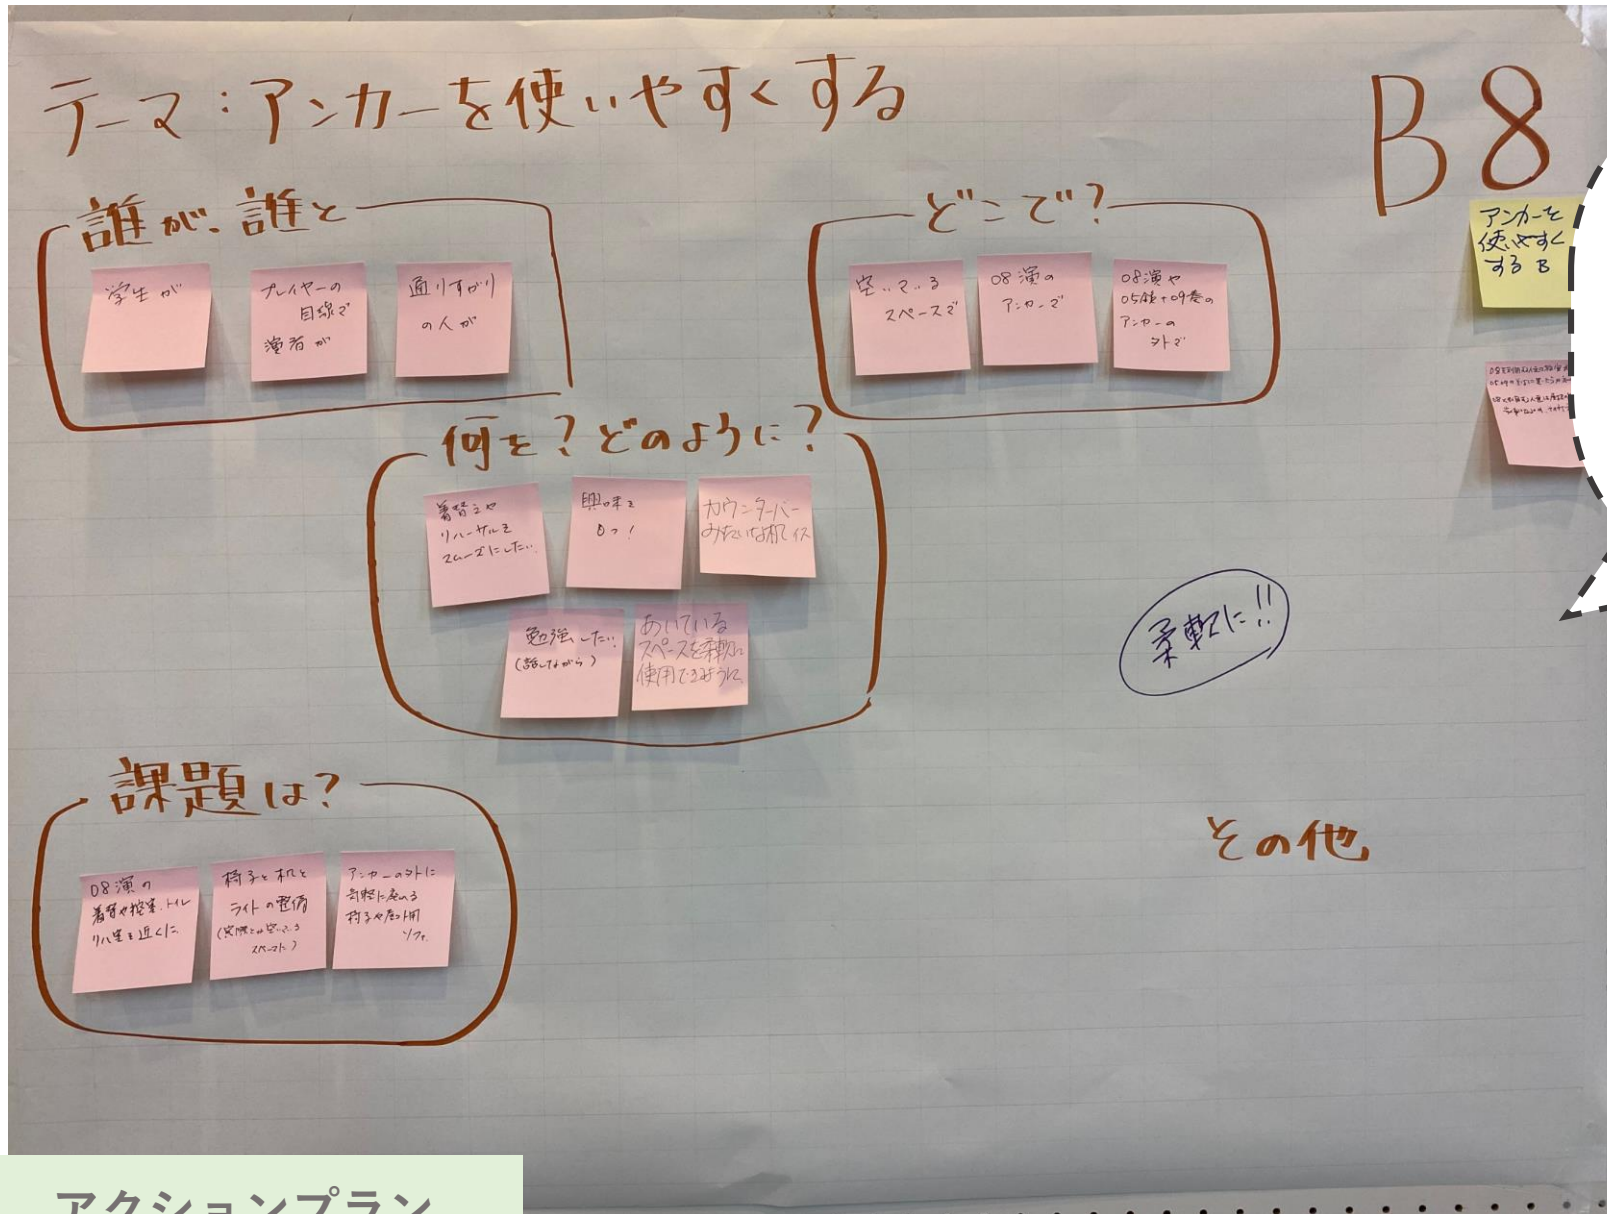 テーマ：アンカーを使いやすくする
B8
アンカーを
使いやすく
する B
誰が、誰と
学生が
プレイヤーの
目線で
演者が
通りすがり
の人が
どこで?
空いている
スペースで
08演の
アンカーで
08演や
05鏡+09奏の
アンカーの
外で
何を?どのように?
着替えや
リハーサルを
スムーズにしたい
興味を
もつ!
カウンターバー
みたいな机イス
勉強したい
(話しながら)
あいている
スペースを柔軟に
使用できるように
柔軟に!!
課題は?
08演の
着替や控室、トイレ
リハ室を近くに
椅子と机と
ライトの整備
(実際には空いてる
スペースに)
アンカーの外に
気軽に座れる
椅子や
ソファ
その他
アクションプラン